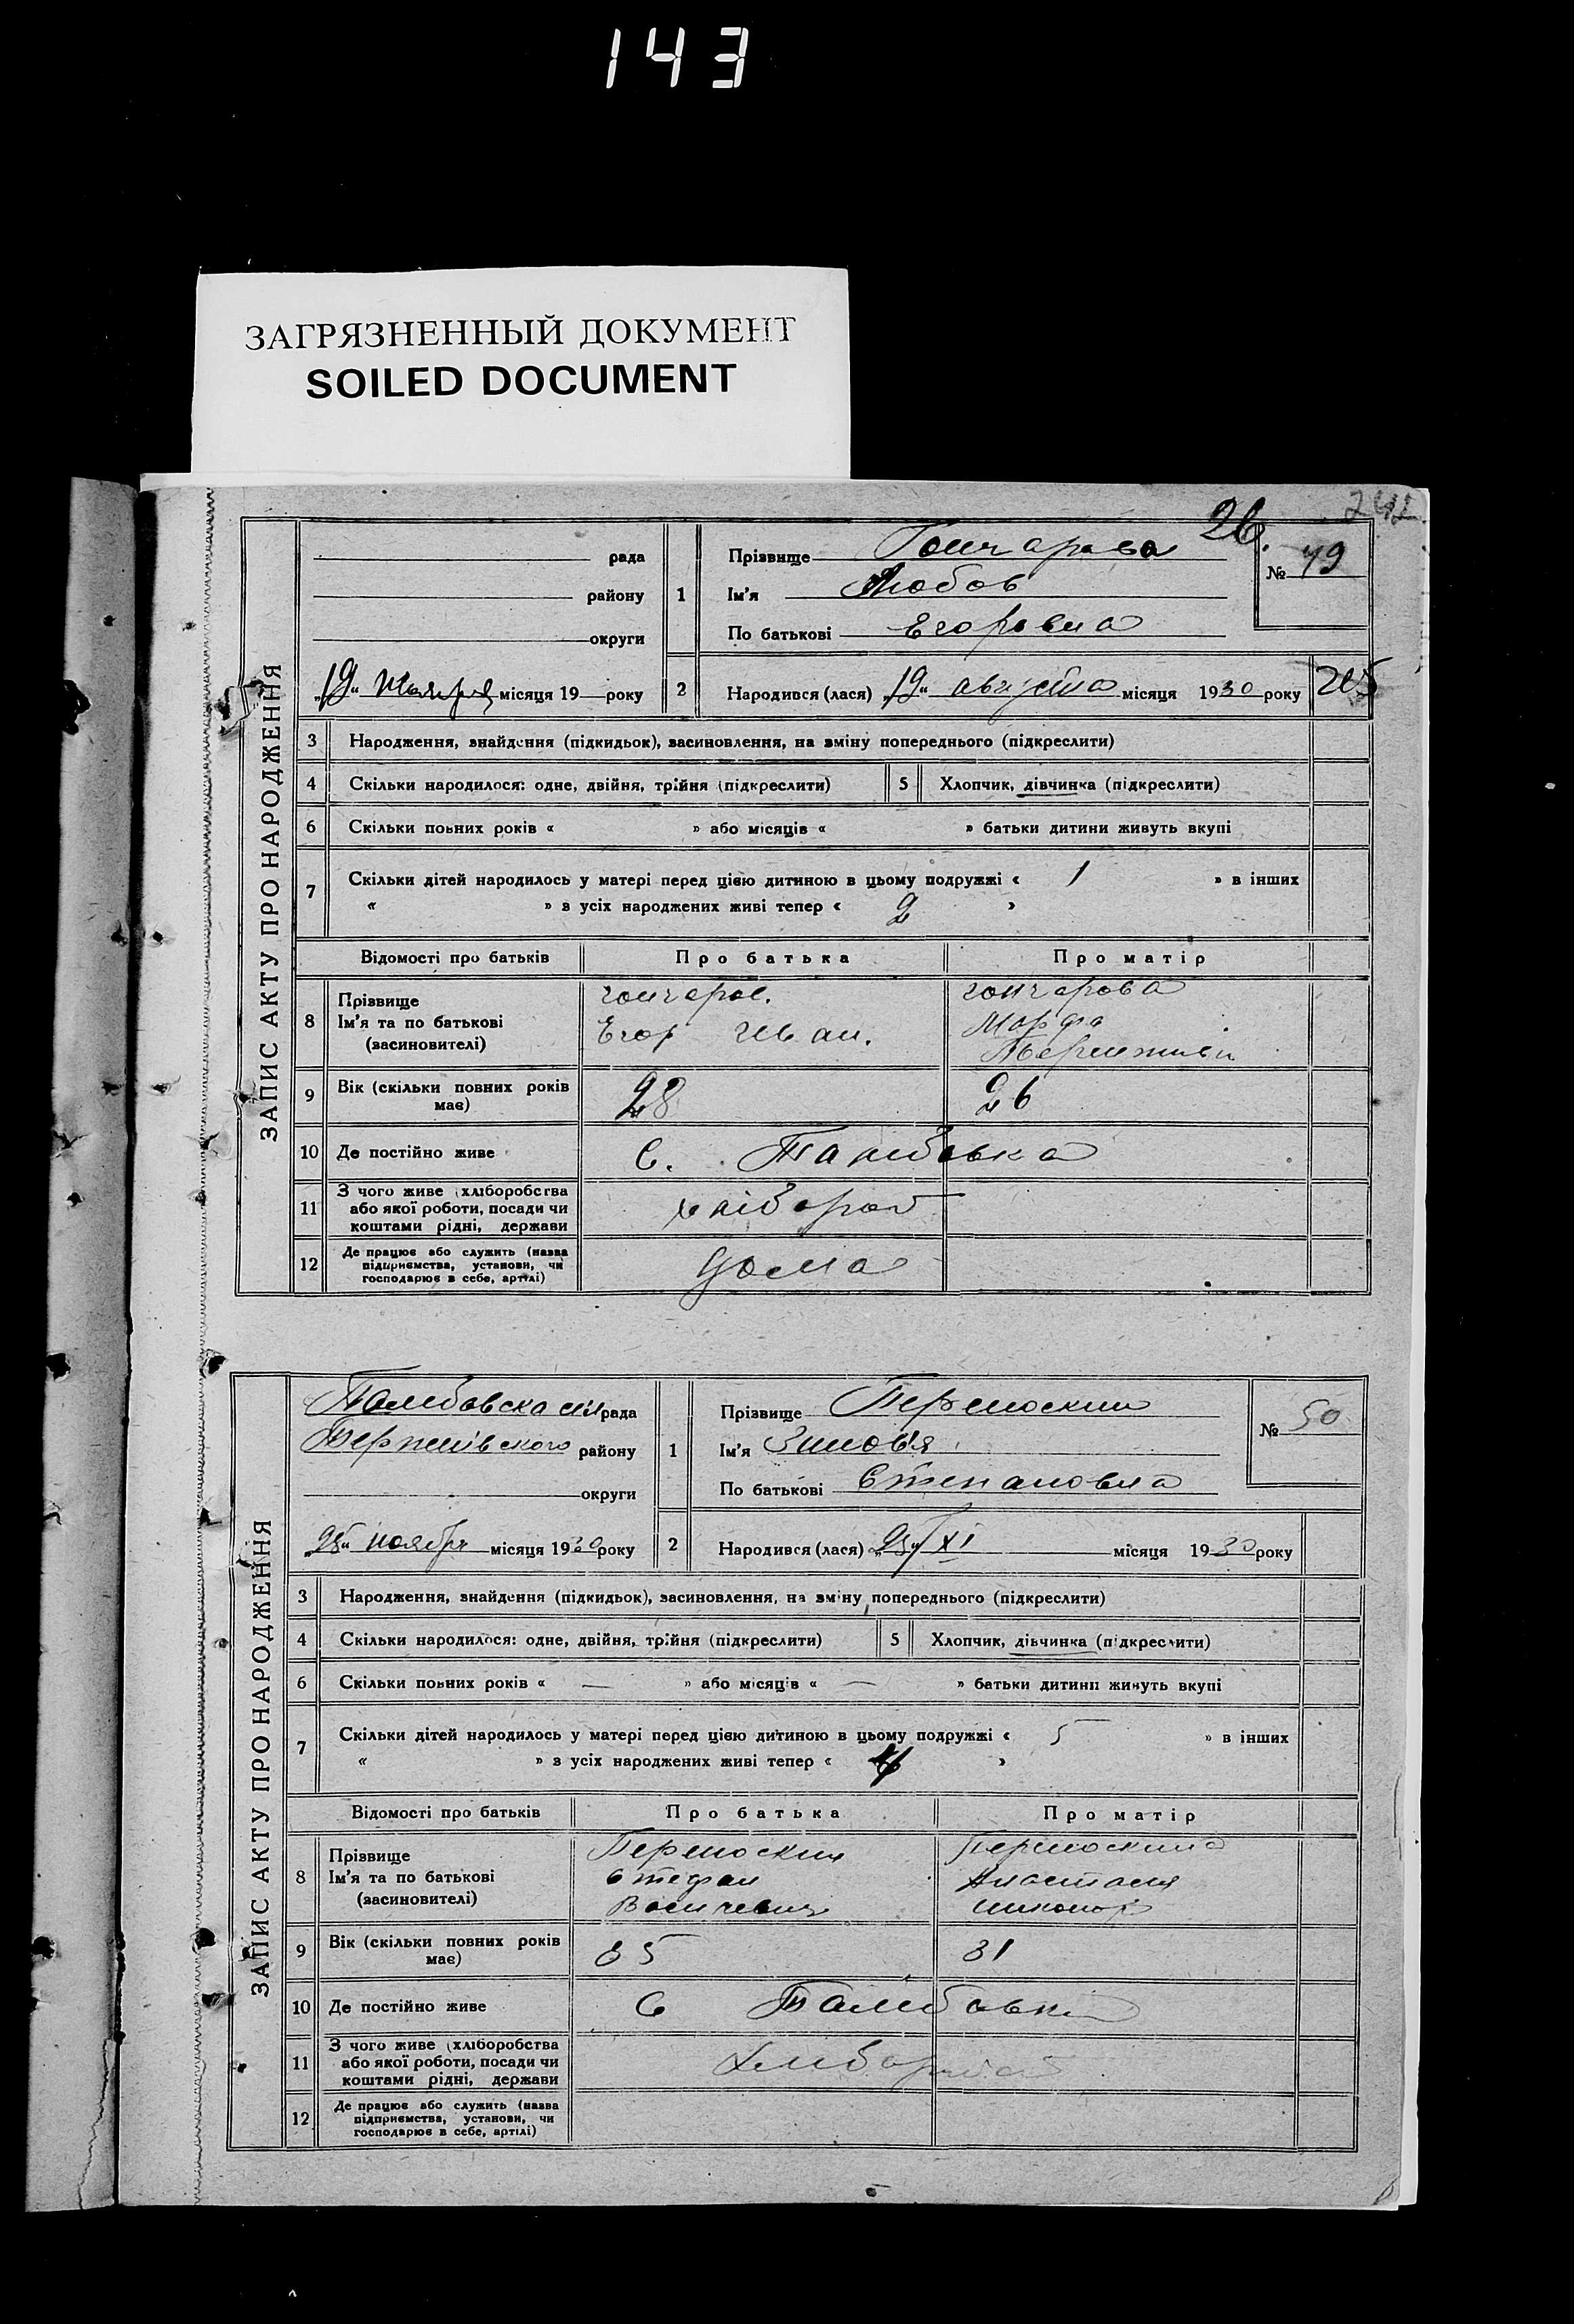 143
ЗАГРЯЗНЕННЫЙ ДОКУМЕНТ
SOILED DOCUMENT
26.
ЗАПИС АКТУ ПРО НАРОДЖЕННЯ
рада
району
округи
„19“ місяця 19 року
1
Прізвище Гончарова
Ім'я Любов
По батькові Егоровна
№ 49
2
Народився (лася) „19“ августа місяця 1930 року
205
3 Народження, знайдення (підкидьок), засиновлення, на зміну попереднього (підкреслити)
4 Скільки народилося: одне, двійня, трійня (підкреслити)
5 Хлопчик, дівчинка (підкреслити)
6 Скільки повних років « » або місяців « » батьки дитини живуть вкупі
7 Скільки дітей народилось у матері перед цією дитиною в цьому подружжі « 1 » в інших
« » з усіх народжених живі тепер « 2 »
Відомості про батьків Про батька Про матір
8 Прізвище
Ім'я та по батькові
(засиновителі)
Гончаров.
Егор Иван.
Гончарова
Марфа
9 Вік (скільки повних років
має)
28 26
10 Де постійно живе С.
11 З чого живе (хліборобства
або якої роботи, посади чи
коштами рідні, держави
хлібороб
12 Де працює або служить (назва
підприємства, установи, чи
господарює в себе, артілі)
Дома
ЗАПИС АКТУ ПРО НАРОДЖЕННЯ
рада
району
округи
„25“ ноября місяця 1930 року
1
Прізвище
Ім'я Зиновія
По батькові Степановна
№ 50
2
Народився (лася) „25“/XI місяця 1930 року
3 Народження, знайдення (підкидьок), засиновлення, на зміну попереднього (підкреслити)
4 Скільки народилося: одне, двійня, трійня (підкреслити)
5 Хлопчик, дівчинка (підкреслити)
6 Скільки повних років « — » або місяців « — » батьки дитини живуть вкупі
7 Скільки дітей народилось у матері перед цією дитиною в цьому подружжі « 5 » в інших
« » з усіх народжених живі тепер « »
Відомості про батьків Про батька Про матір
8 Прізвище
Ім'я та по батькові
(засиновителі)
Стефан
Анастасия
9 Вік (скільки повних років
має)
35 31
10 Де постійно живе С
11 З чого живе (хліборобства
або якої роботи, посади чи
коштами рідні, держави
12 Де працює або служить (назва
підприємства, установи, чи
господарює в себе, артілі)